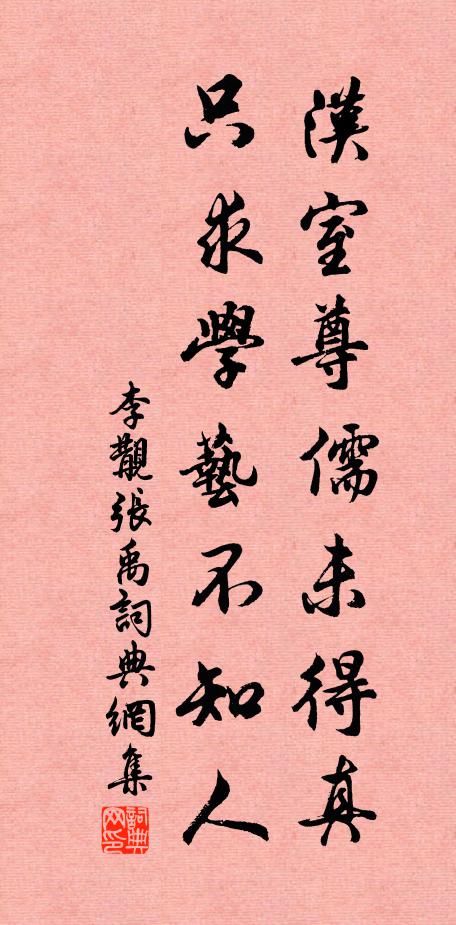 漢室尊儒未得真
只求學藝不知人
李覯張禹詞典網集
詞典网印